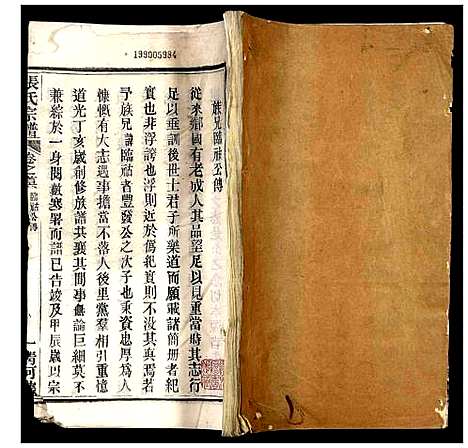 199005984
族兄臨祜公傳
從來鄉國有老成人其品望足以見重當時其志行
足以垂訓後世士君子所樂道而願載諸簡册者紀
實也非浮誇也浮則近於僞紀實則不没其真焉若
予族兄諱臨祜者豐發公之次子也秉資忠厚為人
慷慨有大志遇事擔當不落人後里黨羣相引重憶
道光丁亥歲創修族譜共襄其間事無論巨細莫不
兼綜於一身閱歡寒暑而譜已告竣及甲辰歲以宗
張氏宗譜
卷之
臨祜公傳
一
清河